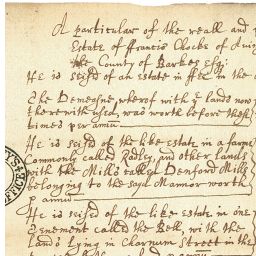 A particular of the reall and p
Estate of ffrancis Chocke of Avin
the County of Barkes Esqr:
He is seised of an estate in ffee in the
The Demeasne, wherof with ye lands now
therewith used, was worth before these
times per annu
He is seised of the like estate in a farme
Commonly called Radley, and other lands
with the Mills called Denford Mills
belonging to the sayd Mannor worth
p annu
He is seised of the like estate in one
Tenement called the Bell, with the
lands Lying in Charnum Street in the